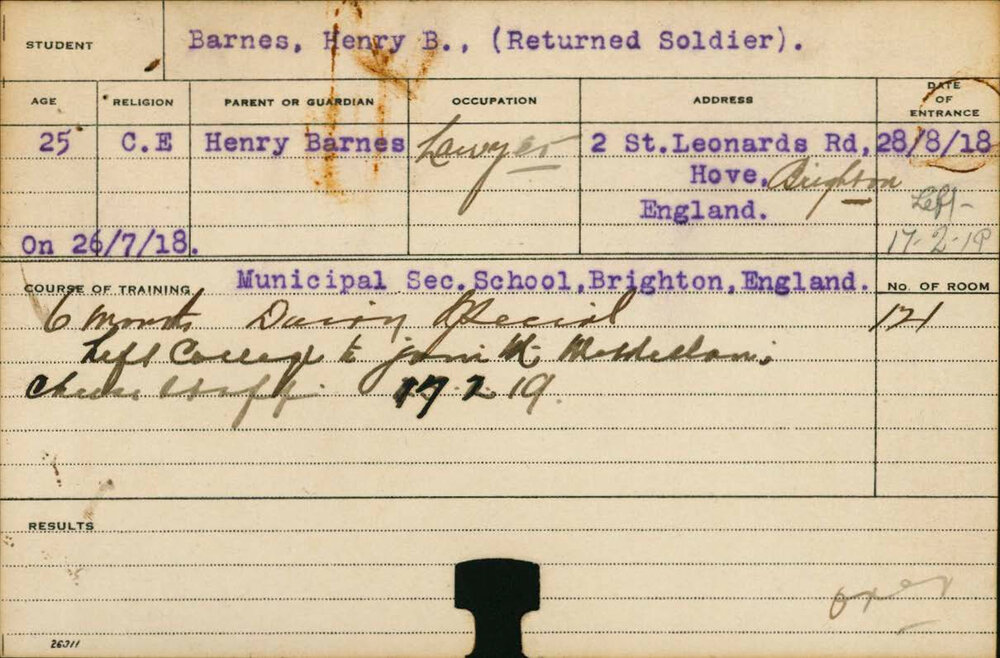 STUDENT Barnes, Henry B., (Returned Soldier).
AGE RELIGION PARENT OR GUARDIAN OCCUPATION ADDRESS DATE OF ENTRANCE
25 C.E Henry Barnes Lawyer 2 St.Leonards Rd, 28/8/18
Hove, Brighton
England. Left-
On 26/7/18. 17-2-19
COURSE OF TRAINING Municipal Sec.School,Brighton,England. No. OF ROOM
6 months Dairy Special 121
Left College to join Mr
Cheese Staff. 17.2.19.
RESULTS
over
26311